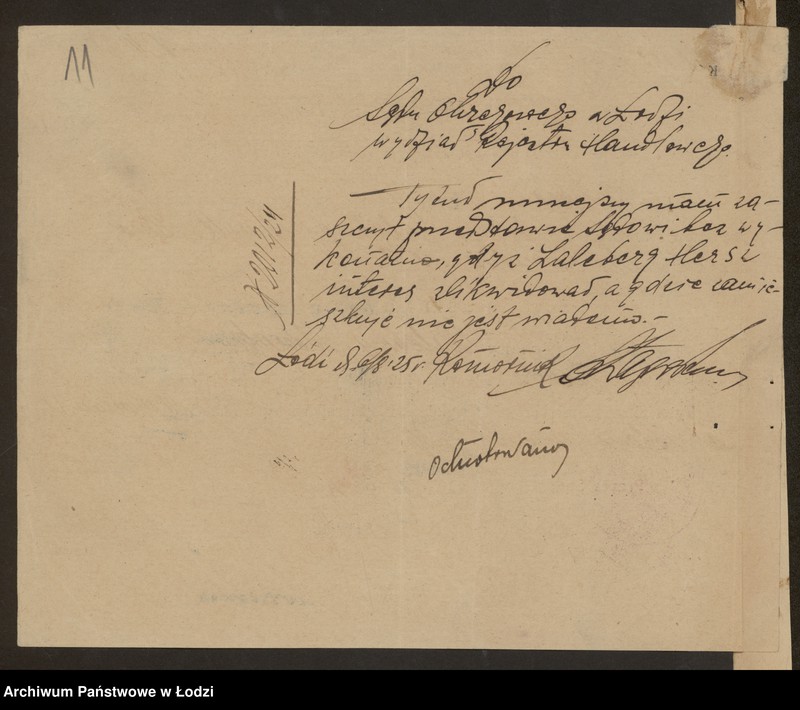 11
Do
Sądu Okręgowego w Łodzi
wydział Rejestru Handlowego.
Tytuł niniejszy mam za-
szczyt przedstawić Sądowi bez wy-
konania, gdyż Laleberg Hersz
interes zlikwidował, a gdzie zamie-
szkuje nie jest wiadomo.-
Łódź d 6/8.25 r. Komornik
Odnotowano
Archiwum Państwowe w Łodzi